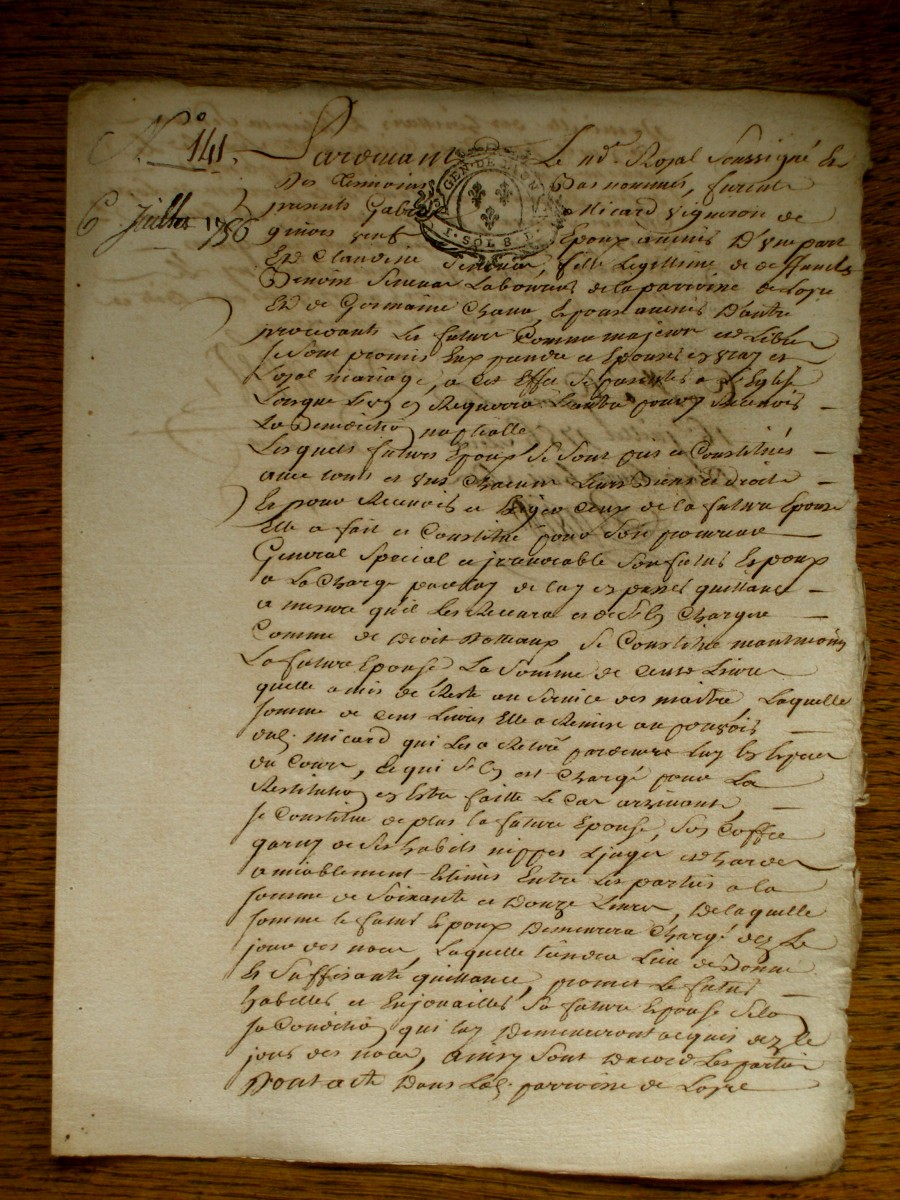 N° 141.
6 Juillet 1786
GEN. DE
I. SOL 8
Pardevant Le nre. Royal Soussigné Et
Des temoins Bas nommés, furent
presents Gabriel Micard vigneron de
veuf Epoux avenir D'vne part
Et Claudine fille Legitime de
Benoit Laboureur de la parroisse de Loyre
Et de Germaine Epouse avenir D'autre
procedants Les futurs Comme majeurs et Libre
Se Sont promis Eux prendre et Epouser en vray et
Loyal mariage, a cet Effet Se presenter a L'Eglise
Lorsque L'vn en Requerra L'autre pour y Recevoir
La Benediction nuptialle
Lesquels futurs Epoux Se Sont pris et Constitués
avec touts et vns Chacuns Leurs Biens et droits
Et pour Recevoir et Exiger Ceux de la future Epouse
Elle a fait et Constitué pour Son procureur
General Special et jrrevocable Son futur Epoux
a La Charge par luy de Luy en passer quittance
a mesure qu'il Les Recevra et de S'en Charger
Comme de Droit Dottaux, Se Constitue neantmoins
La future Epouse La Somme de Cent Livres
quelle a mis de Reste au Service des maitre, Laquelle
Somme de Cent Livres Elle a Remise au pouvoir
dud. micard qui Les a Retiré pardevers Luy En Especes
du Cours, Et qui S'en est Chargé pour La
Restitution en Estre faitte Le Cas arrivant,
Se Constitue de plus la future Epouse, Son Coffre
garny de Ses habits nippes Linges et hardes
amiablement Estimés Entre Les parties a la
Somme de Soixante et Douze Livres, De laquelle
Somme le futur Epoux Demeurera Chargé dez Le
jour des noces, Laquelle tiendra Lieu de Bonne
Et Suffisante quittance, promet Le futur
habiller et Enjouailler Sa future Epouse Selon
Sa Condition qui luy Demeureront acquis dez le
jour des noces, ainsy Sont D'acord Les parties
Dont acte Dans Lad. parroisse de Loyre